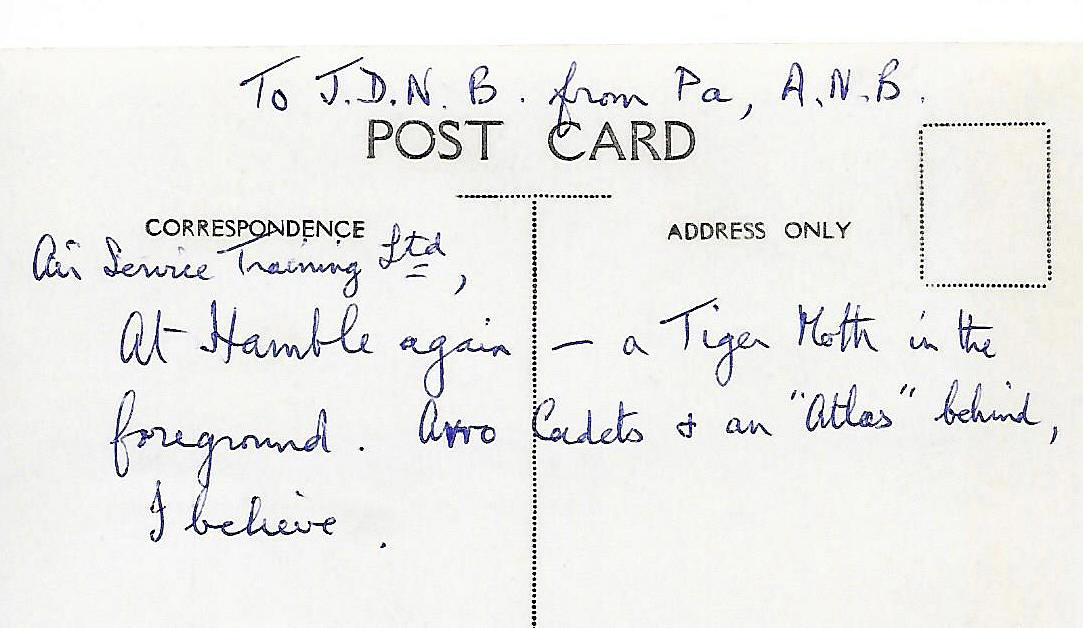 To J.D.N.B. from Pa, A.N.B.
POST CARD
CORRESPONDENCE
ADDRESS ONLY
Air Service Training Ltd,
At Hamble again — a Tiger Moth in the
foreground. Avro Cadets & an "Atlas" behind,
I believe.